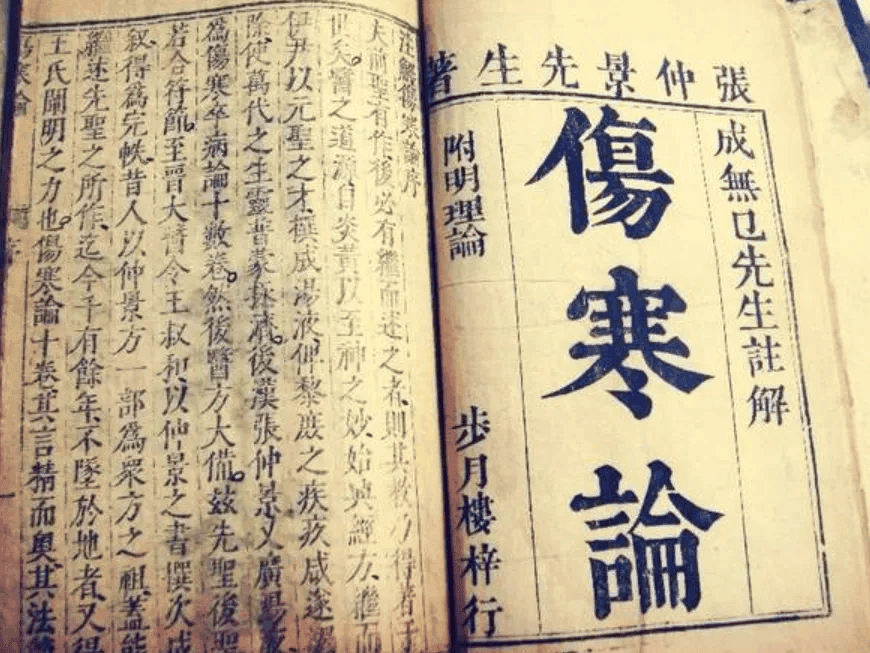 張仲景先生著
成無已先生註解
傷寒論
附明理論
步月樓梓行
注解傷寒論序
夫前聖有作後必有繼而述之者則其教乃得著于
世矣。醫之道源自炎黃以至神之妙始興經方繼而
伊尹以元聖之才撰成湯液俾黎庶之疾疢咸遂蠲
除使萬代之生靈普蒙拯濟。後漢張仲景又廣湯液
為傷寒卒病論十數卷。然後醫方大備。茲先聖後聖
若合符節。至晉太醫令王叔和以仲景之書撰次成
敘得為完帙昔人以仲景方一部為眾方之祖蓋能
繼述先聖之所作迄今千有餘年不墜於地者又得
王氏闡明之力也。傷寒論十卷其言精而奧其法
傷寒論